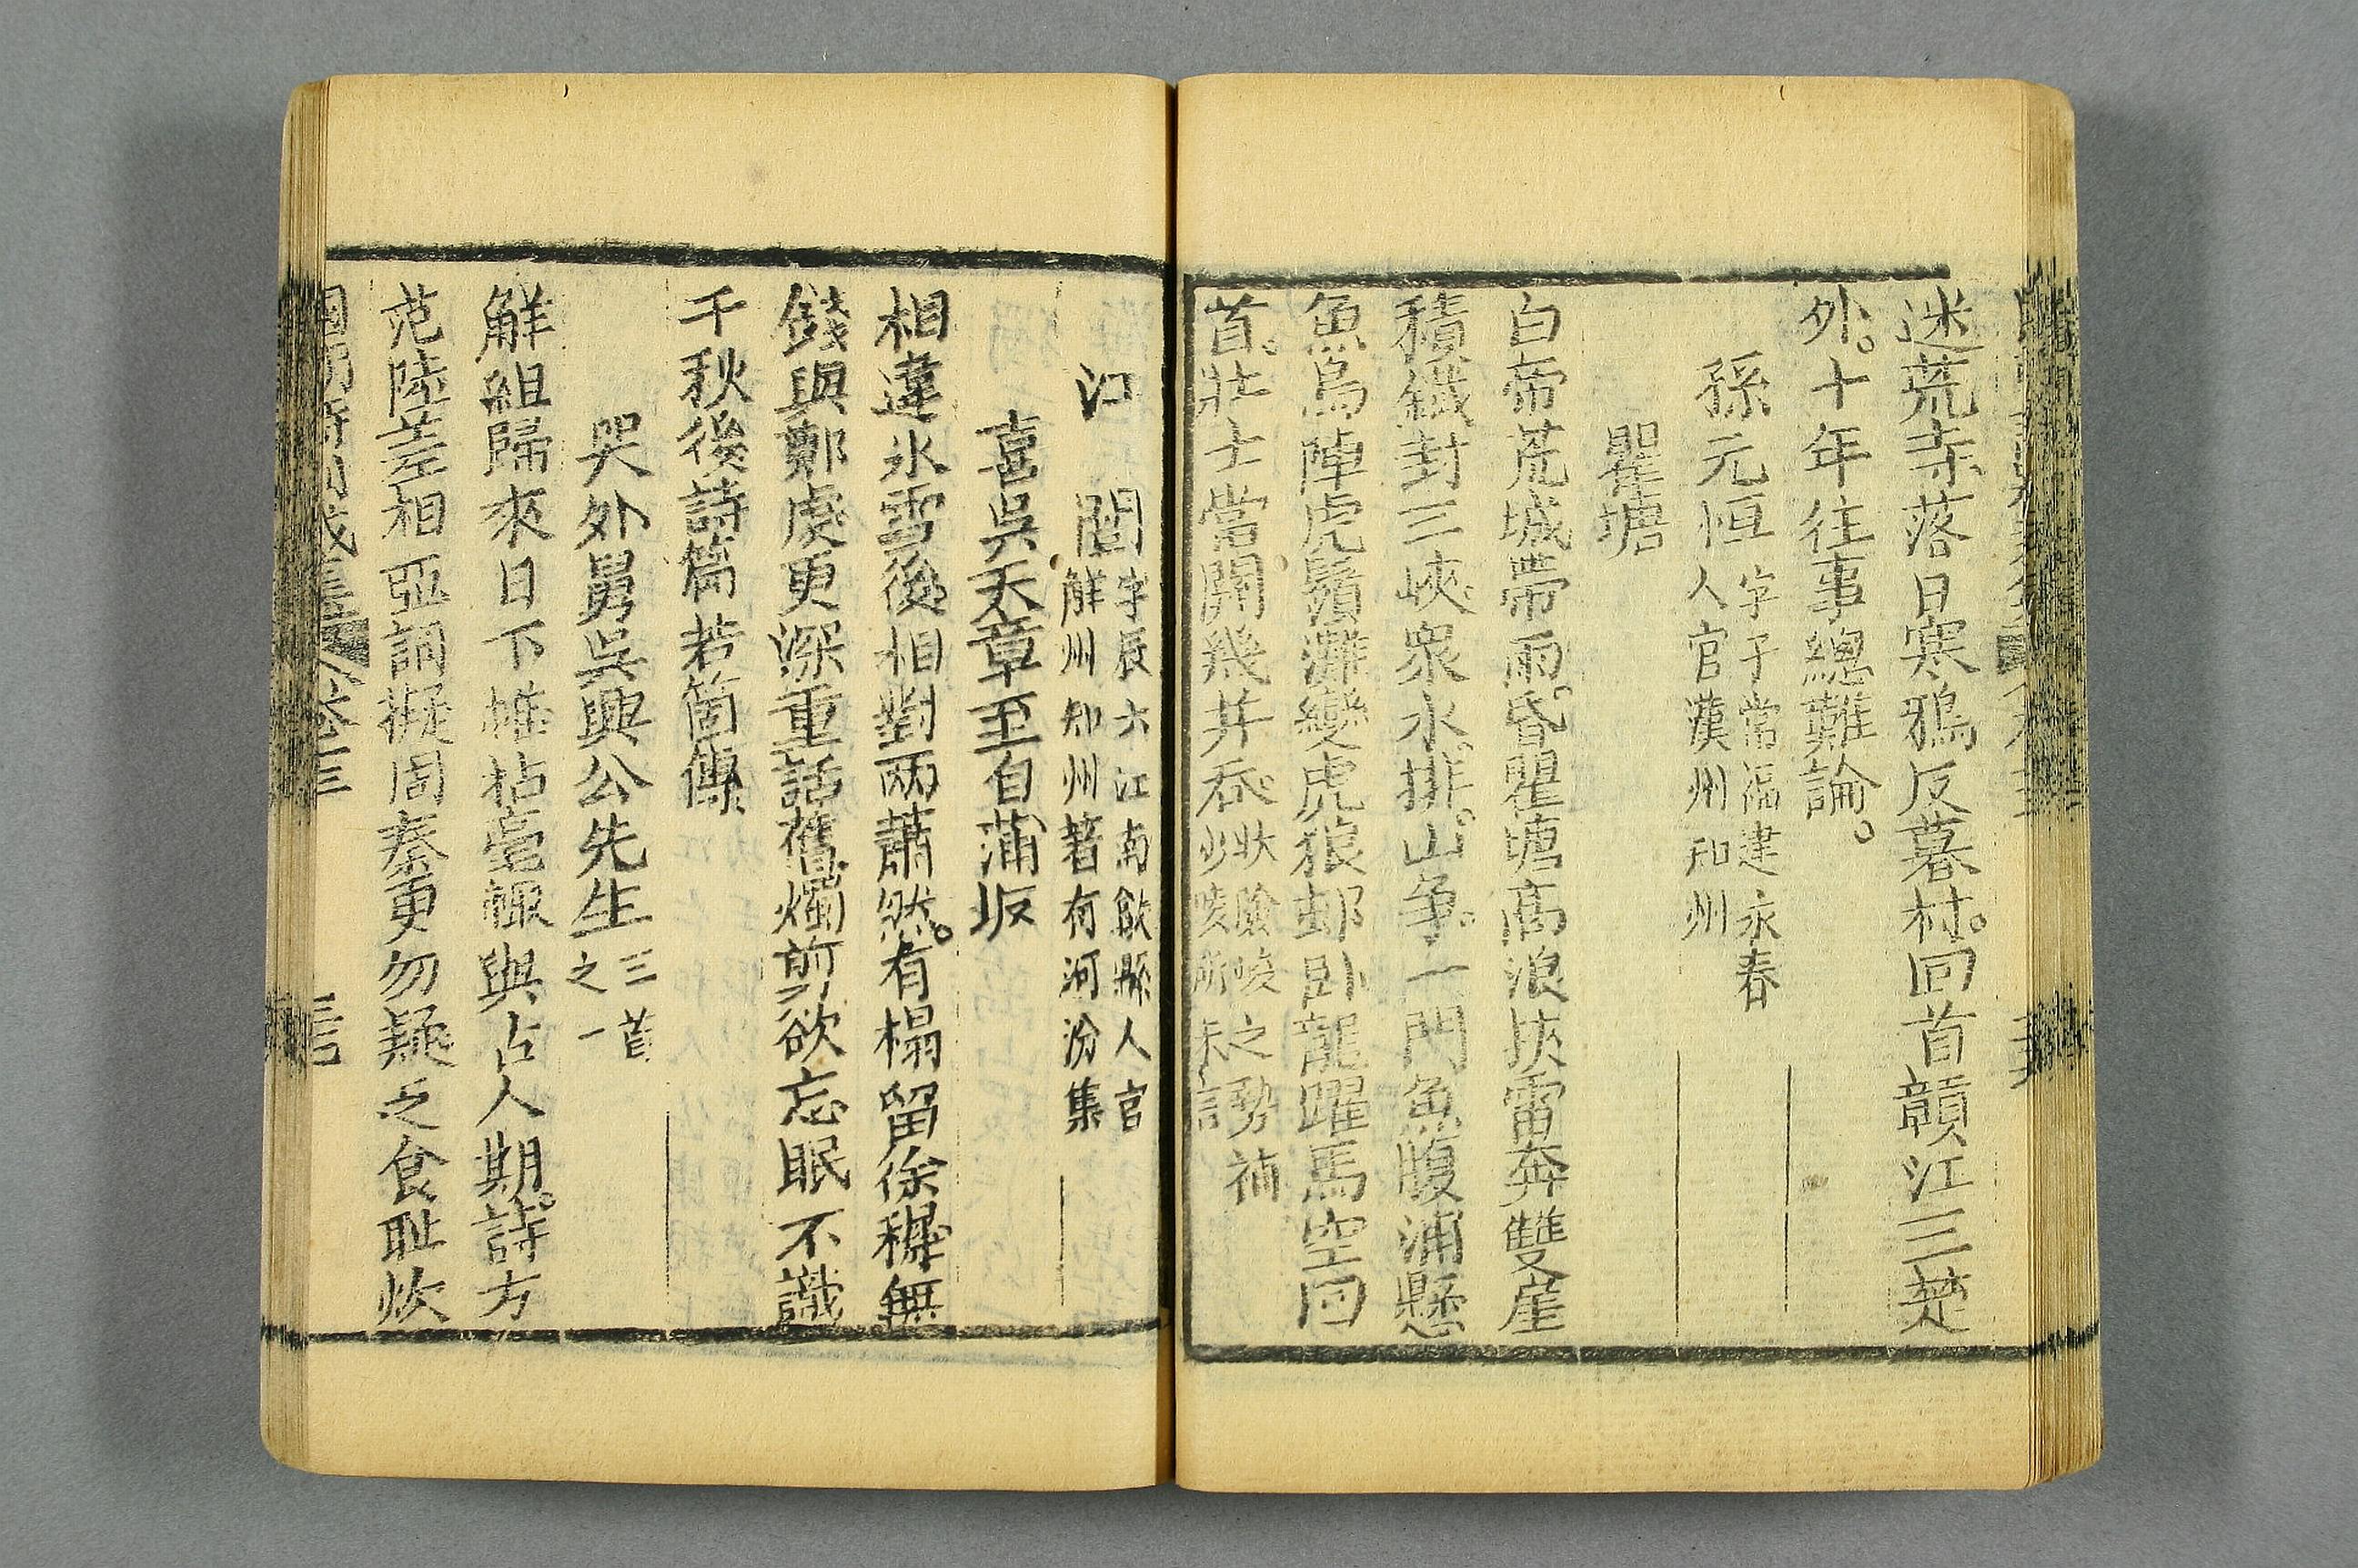 迷荒寺落日寒鴉反暮村。回首贑江三楚
外。十年往事總難論。
孫元恒
字子常福建永春
人官漢州知州
瞿塘
白帝荒城帶雨。昏瞿塘高浪挾雷奔雙崖
積鐵封三峽。眾水。排。山。爭。一門魚腹浦懸
魚鳥陣虎鬚灘變虎狼邨卧龍躍馬空回
首。壯士當關幾并吞。
狀險峻之勢補
少陵所未言
江 闓
字辰六江南歙縣人官
解州知州著有河汾集
喜吳天章至自蒲坂
相違氷雪後相對兩蕭然。有榻留徐穉無
錢與鄭虔更深重話舊燭剪欲忘眠不識
千秋後詩篇若箇傳
哭外舅吳興公先生
三首
之一
解組歸來日下帷拈毫輙與古人期。詩方
范陸差相亞詞擬周秦更勿疑之食耻炊
國朝詩的
卷三